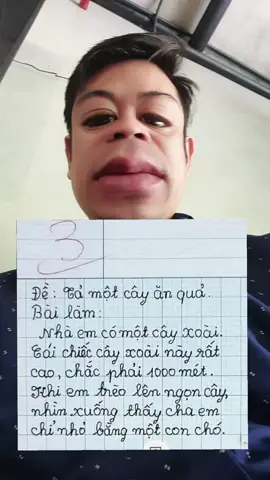 3
Đề: Tả một cây ăn quả.
Bài làm:
Nhà em có một cây xoài.
Cái chiếc cây xoài này rất
cao, chắc phải 1000 mét.
Khi em trèo lên ngọn cây,
nhìn xuống thấy cha em
chỉ nhỏ bằng một con chó.